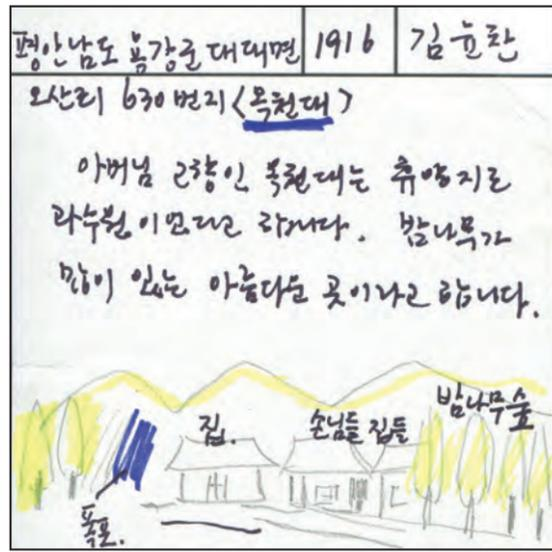 평안남도 용강군 대대면 1916 김윤찬
오산리 630번지 <옥천대>
아버님 고향인 옥천대는 휴양지로
과수원이었다고 합니다. 밤나무가
많이 있는 아름다운 곳이라고 합니다.
밤나무숲
집. 손님들 집들
폭포.